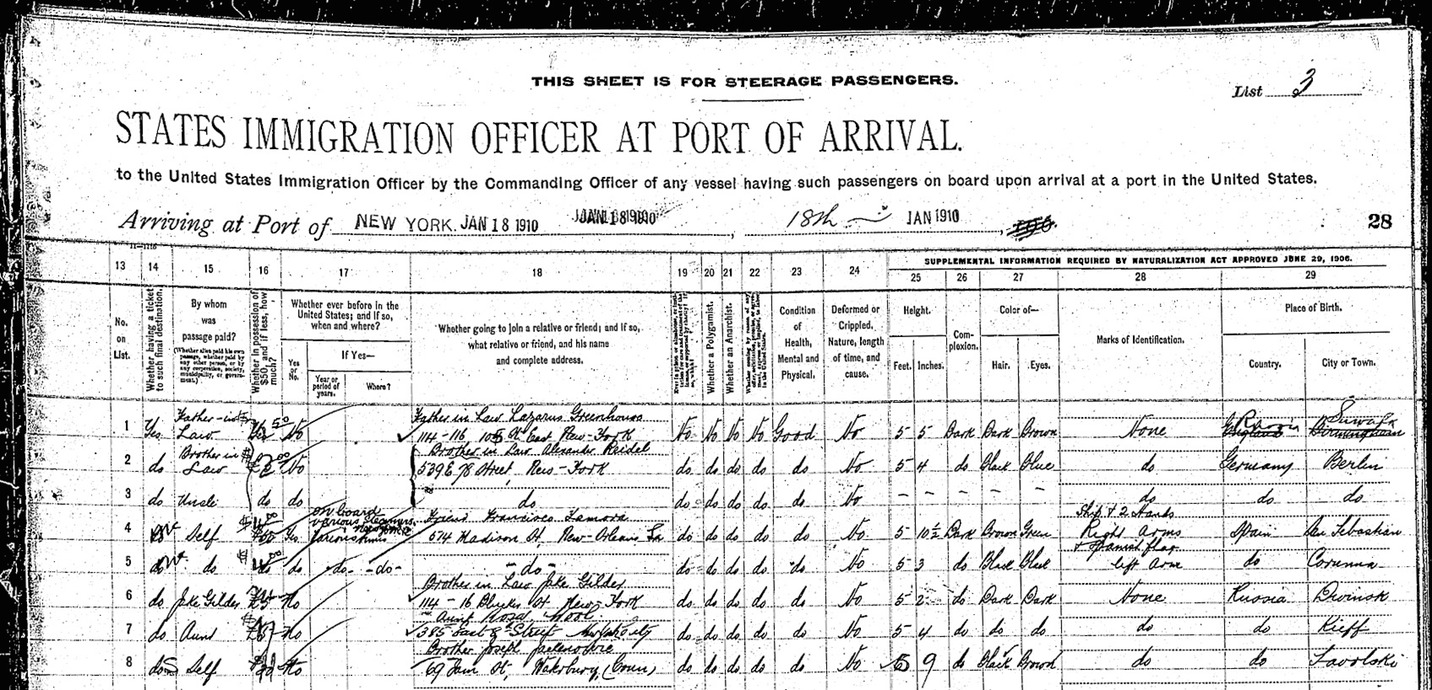 THIS SHEET IS FOR STEERAGE PASSENGERS.
List 3
STATES IMMIGRATION OFFICER AT PORT OF ARRIVAL.
to the United States Immigration Officer by the Commanding Officer of any vessel having such passengers on board upon arrival at a port in the United States.
Arriving at Port of NEW YORK. JAN 18 1910 JAN 18 1910, 18th JAN 1910, 28
13 14 15 16 17 18 19 20 21 22 23 24 SUPPLEMENTAL INFORMATION REQUIRED BY NATURALIZATION ACT APPROVED JUNE 29, 1906.
25 26 27 28 29
No. on List.
Whether having a ticket to such final destination.
By whom was passage paid?
(Whether alien paid his own passage, whether paid by any other person, or by any corporation, society, municipality, or government.)
Whether in possession of $50, and if less, how much?
Whether ever before in the United States; and if so, when and where?
Yes or No.
If Yes—
Year or period of years.
Where?
Whether going to join a relative or friend; and if so, what relative or friend, and his name and complete address.
Whether a Polygamist.
Whether an Anarchist.
Condition of Health, Mental and Physical.
Deformed or Crippled. Nature, length of time, and cause.
Height.
Feet. Inches.
Complexion.
Color of—
Hair. Eyes.
Marks of Identification.
Place of Birth.
Country. City or Town.
Father-in- Father in Law Lazarus Greenhouse Suwalk
1 Yes Law No 114-116 105 St East New-York No No No No Good No 5 5 Dark Dark Brown None England Birmingham
Brother in Brother in Law Alexander
2 do Law No 539 E 78 Street, New-York do do do do do No 5 4 do Black Blue do Germany Berlin
3 do Uncle do do do do do do do do No – – – – – do do do
on board various steamers Friend Francisco Ship & 2 Hands
4 Self Yes 574 Madison St, New-Orleans La do do do do do No 5 10½ Dark Brown Green Right arms Spain San Sebastian
& Spanish flag
5 do do do do -do- -do- -do- do do do do do No 5 3 do Black Black left arm do Corunna
Brother in Law Jake Gilder
6 do Jake Gilder No 114-16 St New York do do do do do No 5 2 do Dark Dark None Russia Dwinsk
Aunt
7 do Aunt No 385 East 8 Street do do do do do No 5 4 do do do do do Kieff
Brother Joseph
8 do Self No 69 St, Waterbury, (Conn) do do do do do No 5 9 do Black Brown do do